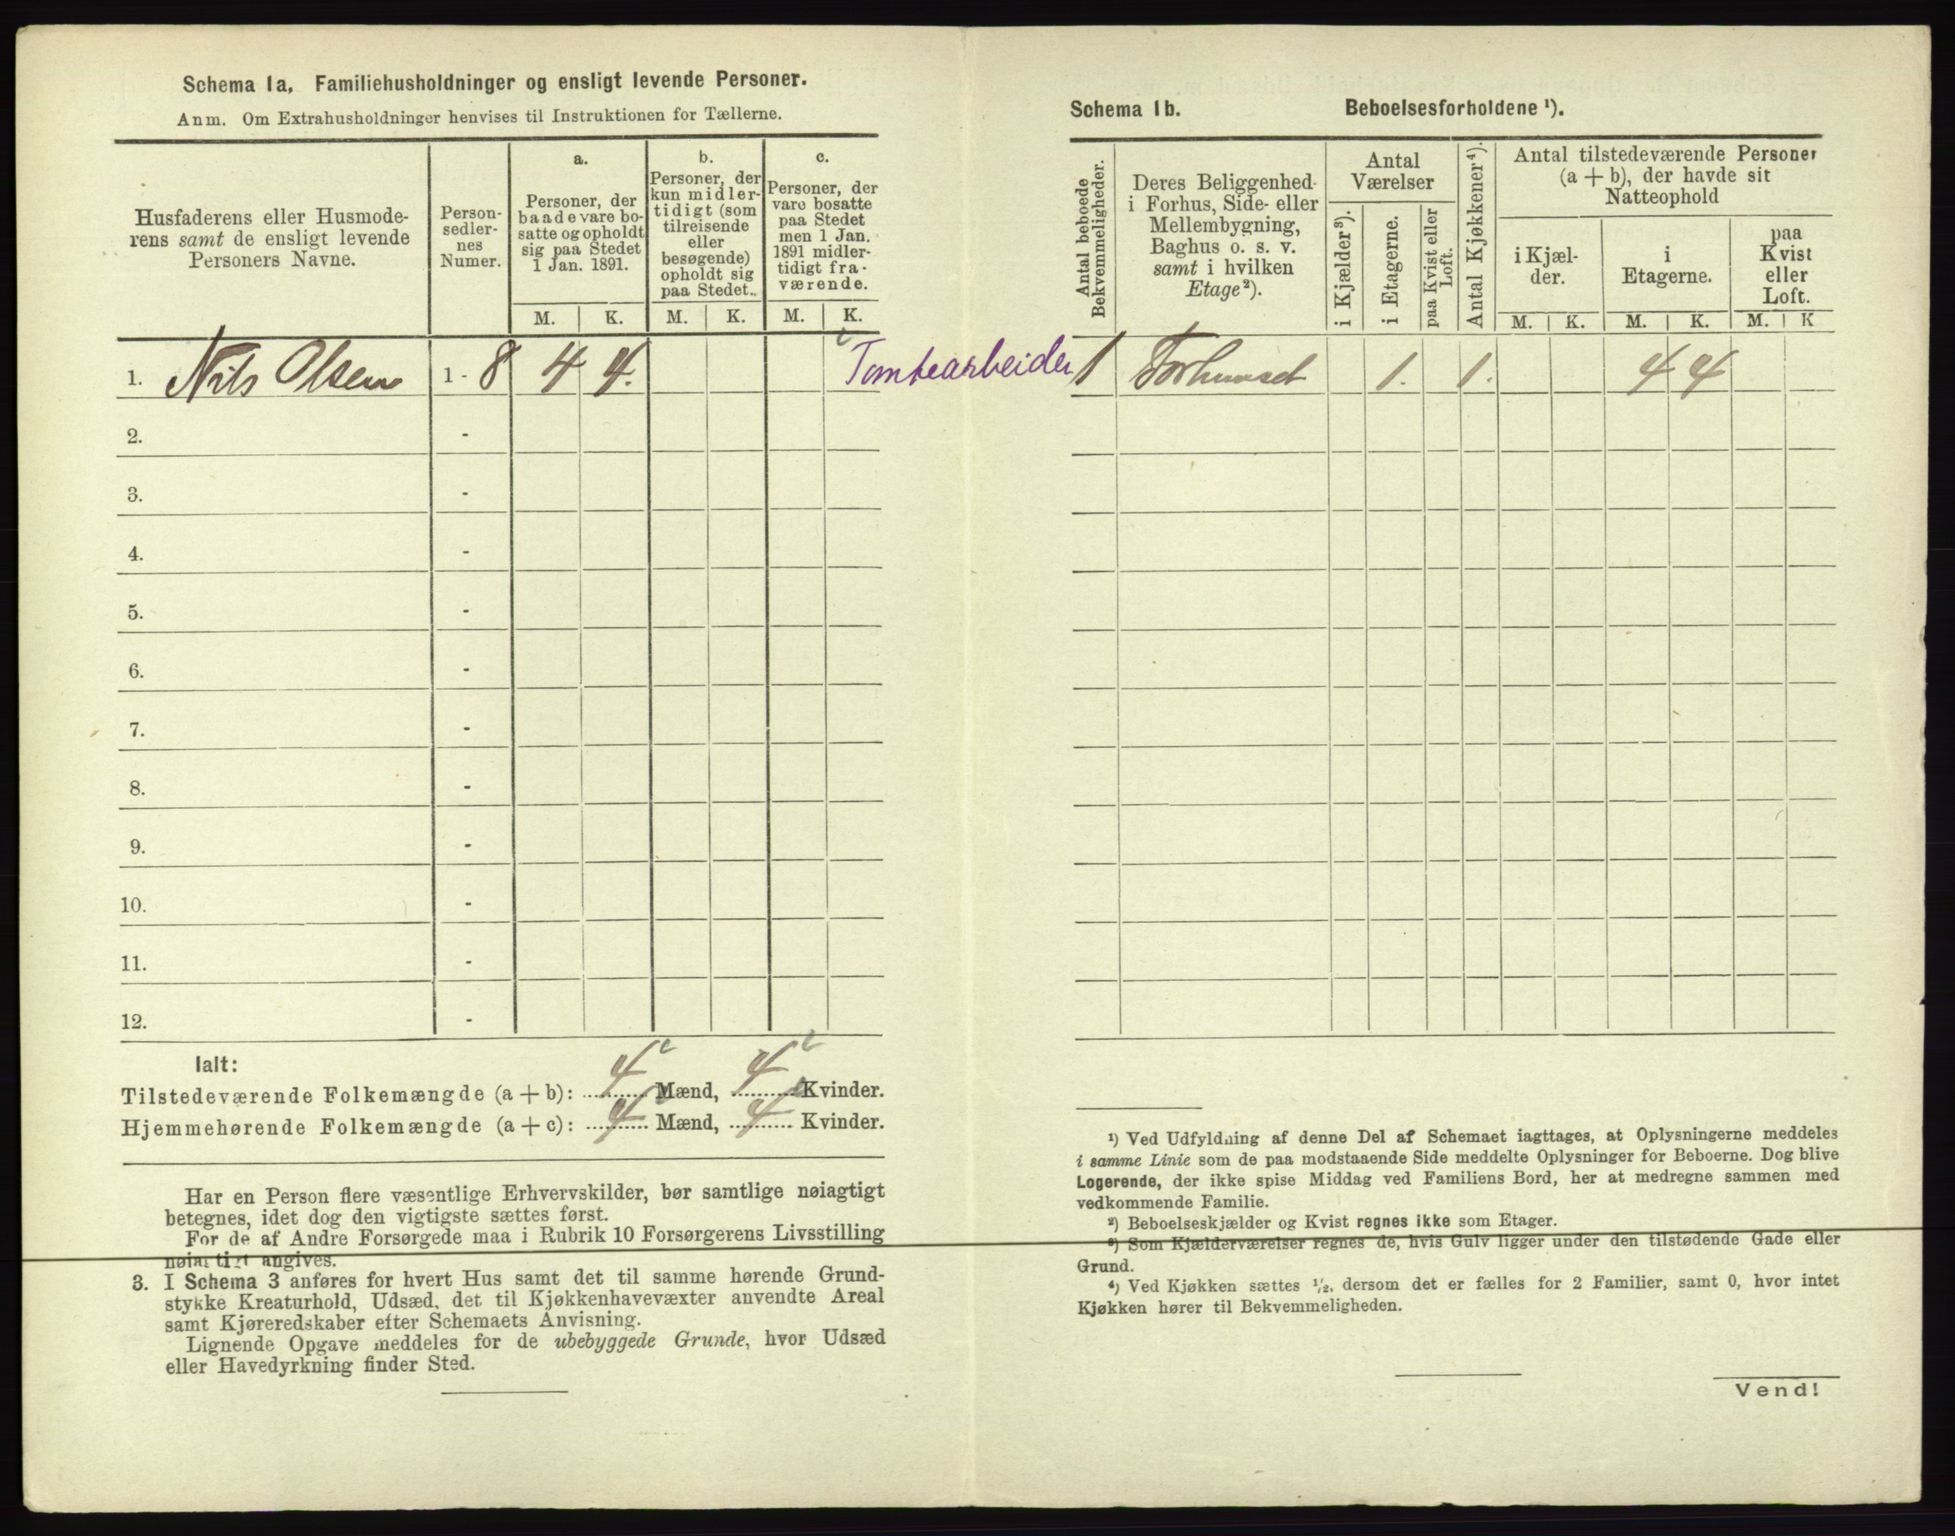 Schema 1a, Familiehusholdninger og ensligt levende Personer.
Anm. Om Extrahusholdninger henvises til Instruktionen for Tællerne.
Husfaderens eller Husmode-
rens samt de ensligt levende
Personers Navne.
Person-
sedler-
nes
Numer.
a.
Personer, der
baade vare bo-
satte og opholdt
sig paa Stedet
1 Jan. 1891.
b.
Personer, der
kun midler-
tidigt (som
tilreisende
eller
besøgende)
opholdt sig
paa Stedet.
c.
Personer, der
vare bosatte
paa Stedet
men 1 Jan.
1891 midler-
tidigt fra-
værende.
M. K. M. K. M. K.
1. Nils Olsen 1 - 8 4 4. Tomtearbeider
2. -
3. -
4. -
5. -
6. -
7. -
8. -
9. -
10. -
11. -
12. -
Ialt:
Tilstedeværende Folkemængde (a + b): 4 Mænd, 4 Kvinder.
Hjemmehørende Folkemængde (a + c): 4 Mænd, 4 Kvinder.
Har en Person flere væsentlige Erhvervskilder, bør samtlige nøiagtigt
betegnes, idet dog den vigtigste sættes først.
For de af Andre Forsørgede maa i Rubrik 10 Forsørgerens Livsstilling
nøiagtigt angives.
3. I Schema 3 anføres for hvert Hus samt det til samme hørende Grund-
stykke Kreaturhold, Udsæd, det til Kjøkkenhavevæxter anvendte Areal
samt Kjøreredskaber efter Schemaets Anvisning.
Lignende Opgave meddeles for de ubebyggede Grunde, hvor Udsæd
eller Havedyrkning finder Sted.
Schema 1b. Beboelsesforholdene ¹).
Antal beboede
Bekvemmeligheder.
Deres Beliggenhed
i Forhus, Side- eller
Mellembygning,
Baghus o. s. v.
samt i hvilken
Etage²).
Antal
Værelser
i Kjælder³).
i Etagerne.
paa Kvist eller
Loft.
Antal Kjøkkener⁴).
Antal tilstedeværende Personer
(a + b), der havde sit
Natteophold
i Kjæl-
der.
i
Etagerne.
paa
Kvist
eller
Loft.
M. K. M. K. M. K
1 Forhuuset 1. 1. 4 4
¹) Ved Udfyldning af denne Del af Schemaet iagttages, at Oplysningerne meddeles
i samme Linie som de paa modstaaende Side meddelte Oplysninger for Beboerne. Dog blive
Logerende, der ikke spise Middag ved Familiens Bord, her at medregne sammen med
vedkommende Familie.
²) Beboelseskjælder og Kvist regnes ikke som Etager.
³) Som Kjælderværelser regnes de, hvis Gulv ligger under den tilstødende Gade eller
Grund.
⁴) Ved Kjøkken sættes ½, dersom det er fælles for 2 Familier, samt 0, hvor intet
Kjøkken hører til Bekvemmeligheden.
Vend!